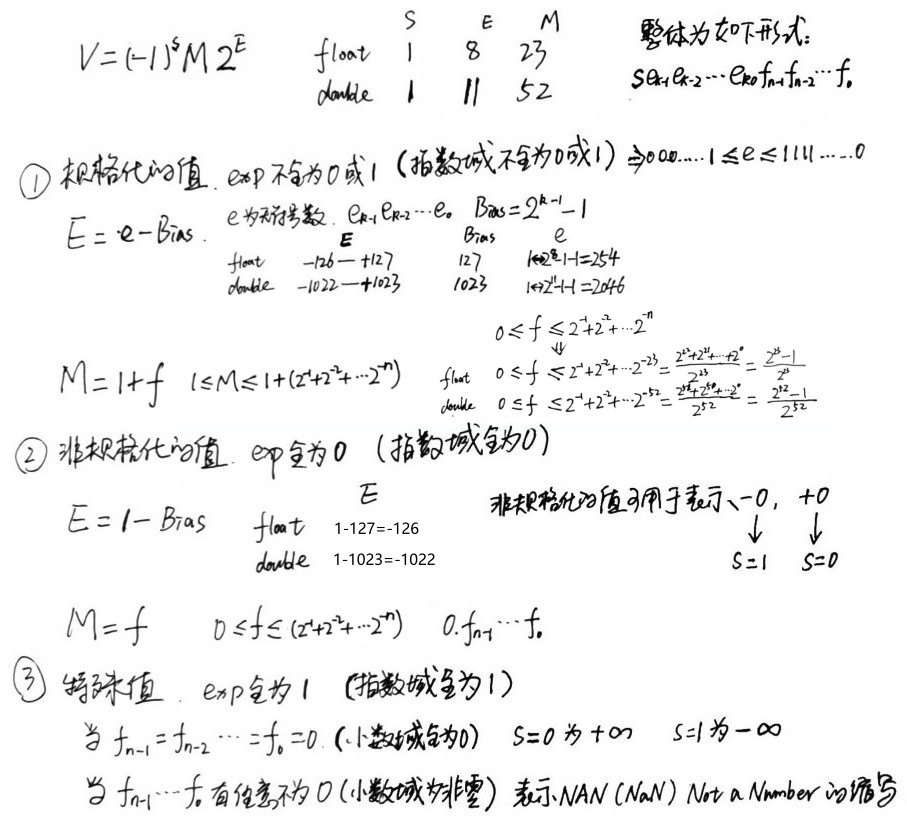 S E M
V=(-1)^s M 2^E float 1 8 23 整体为如下形式:
double 1 11 52 s e_{k-1} e_{k-2} … e_{k0} f_{n-1} f_{n-2} … f_0
① 规格化的值. exp 不全为0或1 (指数域不全为0或1) ⇒ 000……1 ≤ e ≤ 1111……0
E = e - Bias. e为无符号数. e_{k-1} e_{k-2} … e_0 Bias = 2^{k-1} - 1
E Bias e
float -126 — +127 127 1↔2^8-1-1=254
double -1022 — +1023 1023 1↔2^11-1-1=2046
0 ≤ f ≤ 2^{-1}+2^{-2}+…2^{-n}
⇓
M = 1+f 1≤M≤1+(2^{-1}+2^{-2}+…2^{-n}) float 0 ≤ f ≤ 2^{-1}+2^{-2}+…2^{-23} = (2^{22}+2^{21}+…+2^0)/2^{23} = (2^{23}-1)/2^{23}
double 0 ≤ f ≤ 2^{-1}+2^{-2}+…2^{-52} = (2^{51}+2^{50}+…2^0)/2^{52} = (2^{52}-1)/2^{52}
② 非规格化的值. exp全为0 (指数域全为0)
E 非规格化的值可用于表示、-0, +0
E = 1 - Bias float 1-127=-126 ↓ ↓
double 1-1023=-1022 S=1 S=0
M = f 0 ≤ f ≤ (2^{-1}+2^{-2}+…2^{-n}) 0.f_{n-1} … f_0
③ 特殊值. exp全为1 (指数域全为1)
当 f_{n-1} = f_{n-2} … = f_0 = 0. (小数域全为0) S=0 为 +∞ S=1 为 -∞
当 f_{n-1} … f_0 有任意不为0 (小数域为非零) 表示NAN (NaN) Not a Number 的缩写